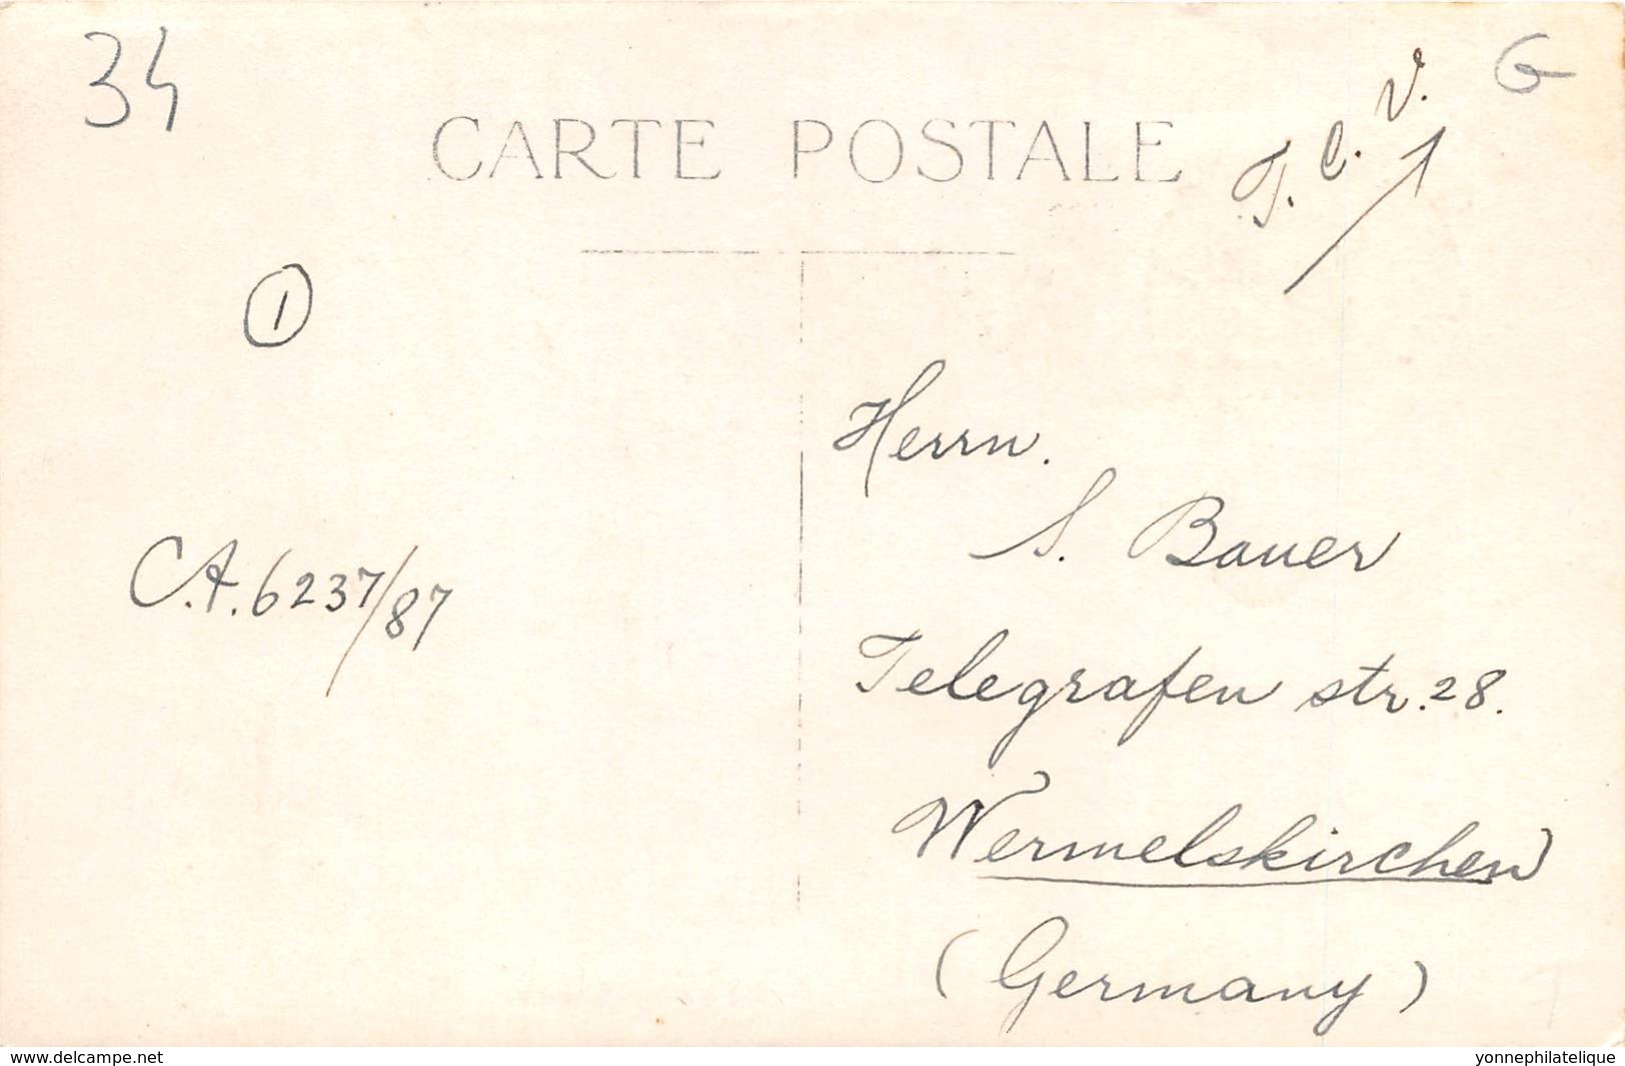 34
G
T. C. V. 1
CARTE POSTALE
1
Herrn.
S. Bauer
C.A. 6237/87
Telegrafen str. 28.
Wermelskirchen
(Germany)
www.delcampe.net
yonnephilatelique